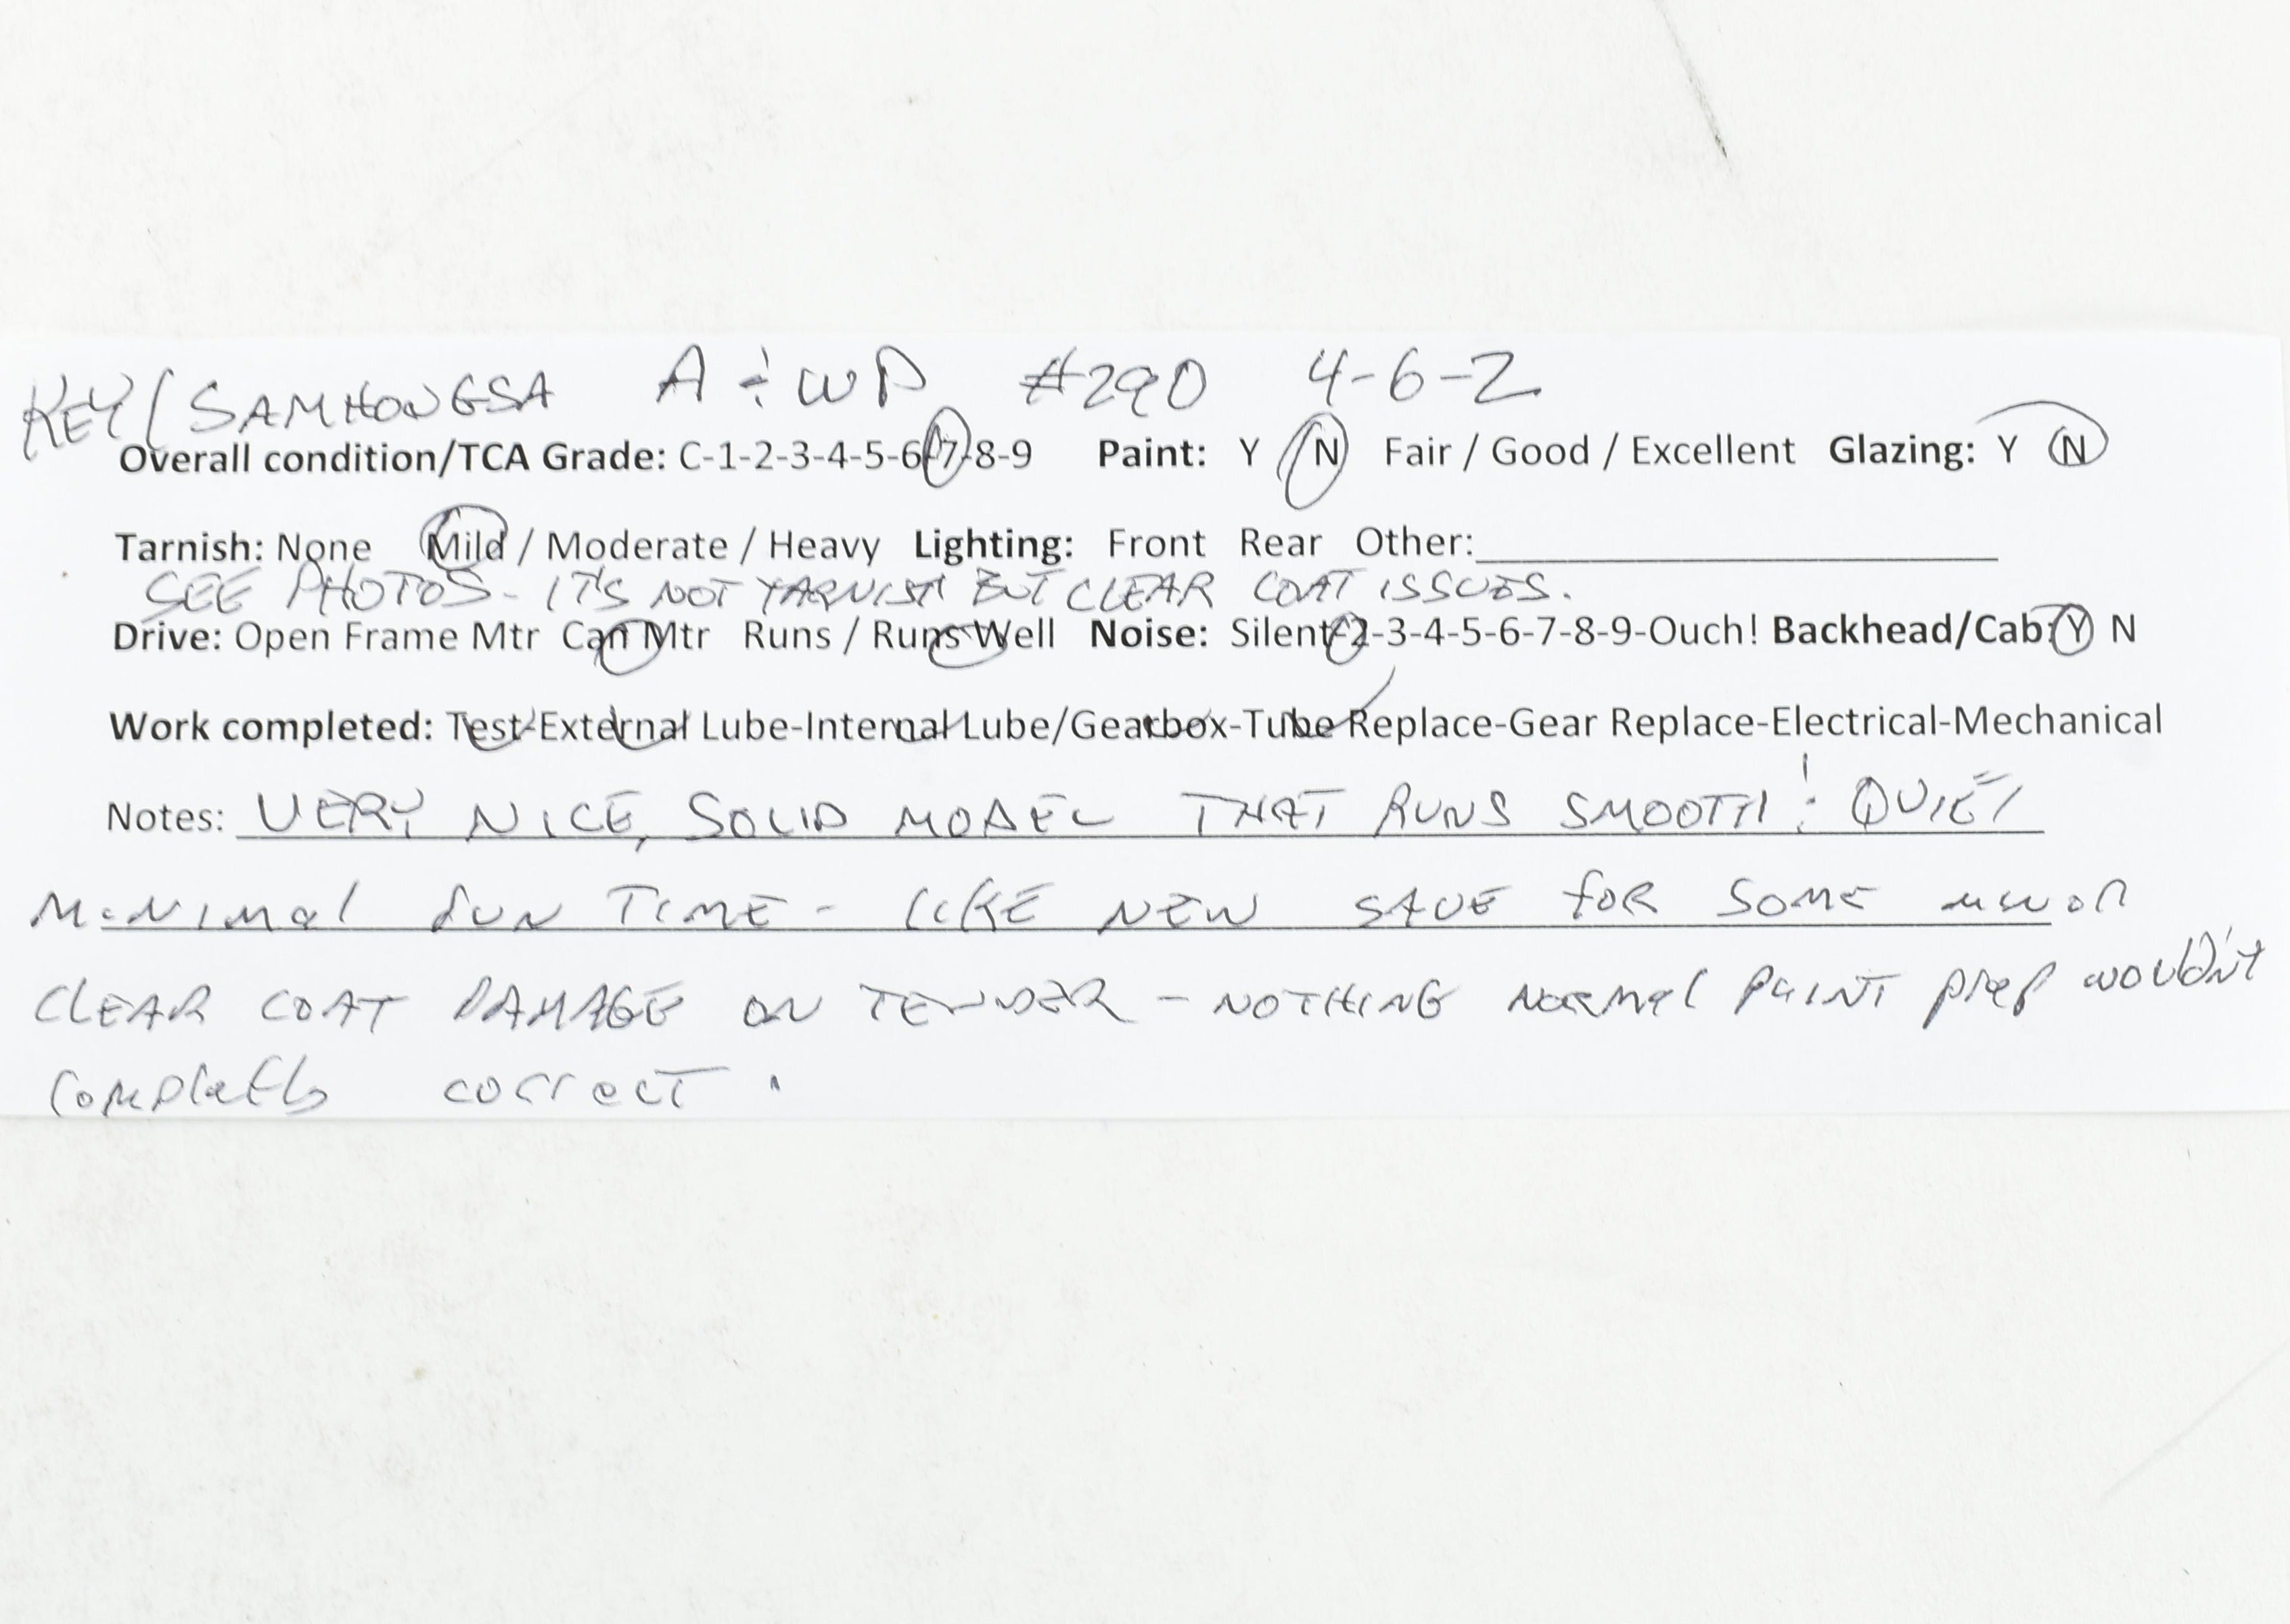 KEY/SAMHONGSA A & WP #290 4-6-2
Overall condition/TCA Grade: C-1-2-3-4-5-6-7-8-9 Paint: Y / N Fair / Good / Excellent Glazing: Y N
Tarnish: None Mild / Moderate / Heavy Lighting: Front Rear Other:
SEE PHOTOS - IT'S NOT TARNISH BUT CLEAR COAT ISSUES.
Drive: Open Frame Mtr Can Mtr Runs / Runs Well Noise: Silent-2-3-4-5-6-7-8-9-Ouch! Backhead/Cab: Y N
Work completed: Test-External Lube-Internal Lube/Gearbox-Tube Replace-Gear Replace-Electrical-Mechanical
Notes: VERY NICE, SOLID MODEL THAT RUNS SMOOTH & QUIET
Minimal run TIME - LIKE NEW SAVE for SOME minor
CLEAR COAT DAMAGE ON TENDER - NOTHING NORMAL PAINT prep wouldn't
completely correct.